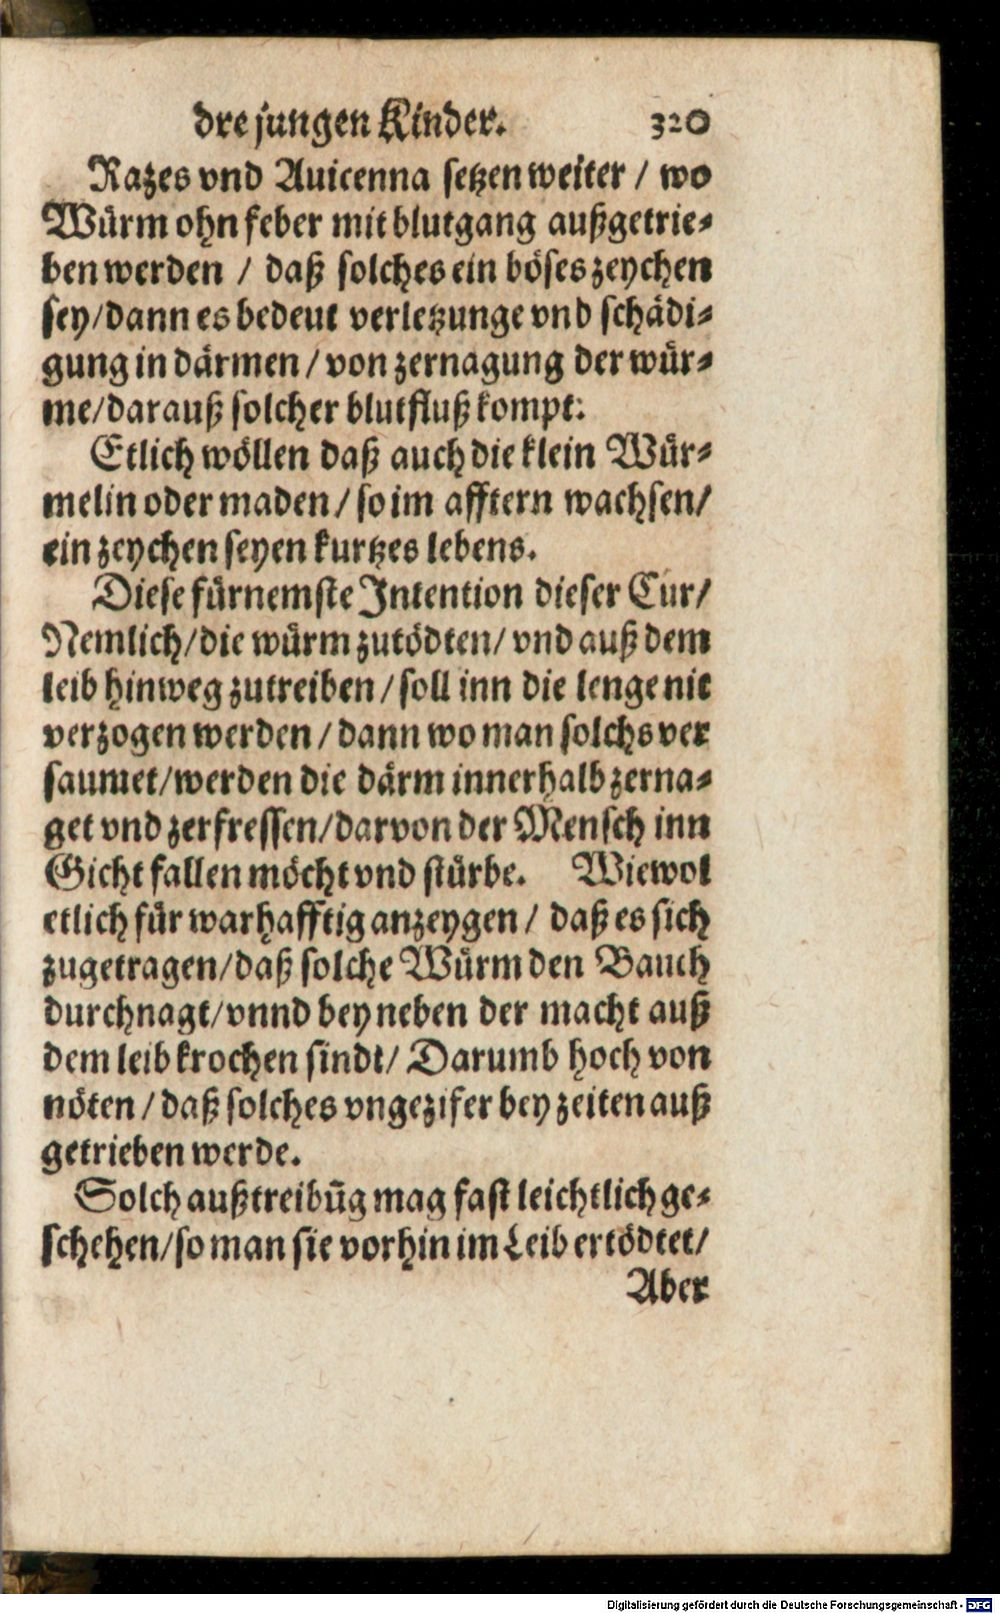 dre jungen Kinder. 320
Razes vnd Auicenna setzen weiter / wo
Würm ohn feber mit blutgang außgetrie-
ben werden / daß solches ein böses zeychen
sey/dann es bedeut verletzunge vnd schädi-
gung in därmen / von zernagung der wür-
me/darauß solcher blutfluß kompt:
Etlich wöllen daß auch die klein Wür-
melin oder maden / so im afftern wachsen/
ein zeychen seyen kurtzes lebens.
Diese fürnemste Intention dieser Cur/
Nemlich/die würm zutödten/ vnd auß dem
leib hinweg zutreiben / soll inn die lenge nit
verzogen werden / dann wo man solchs ver
saumet/werden die därm innerhalb zerna-
get vnd zerfressen/darvon der Mensch inn
Gicht fallen möcht vnd stürbe. Wiewol
etlich für warhafftig anzeygen / daß es sich
zugetragen/daß solche Würm den Bauch
durchnagt/vnnd bey neben der macht auß
dem leib krochen sindt/ Darumb hoch von
nöten / daß solches vngezifer bey zeiten auß
getrieben werde.
Solch außtreibūg mag fast leichtlich ge-
schehen/so man sie vorhin im Leib ertödtet/
Aber
Digitalisierung gefördert durch die Deutsche Forschungsgemeinschaft - DFG